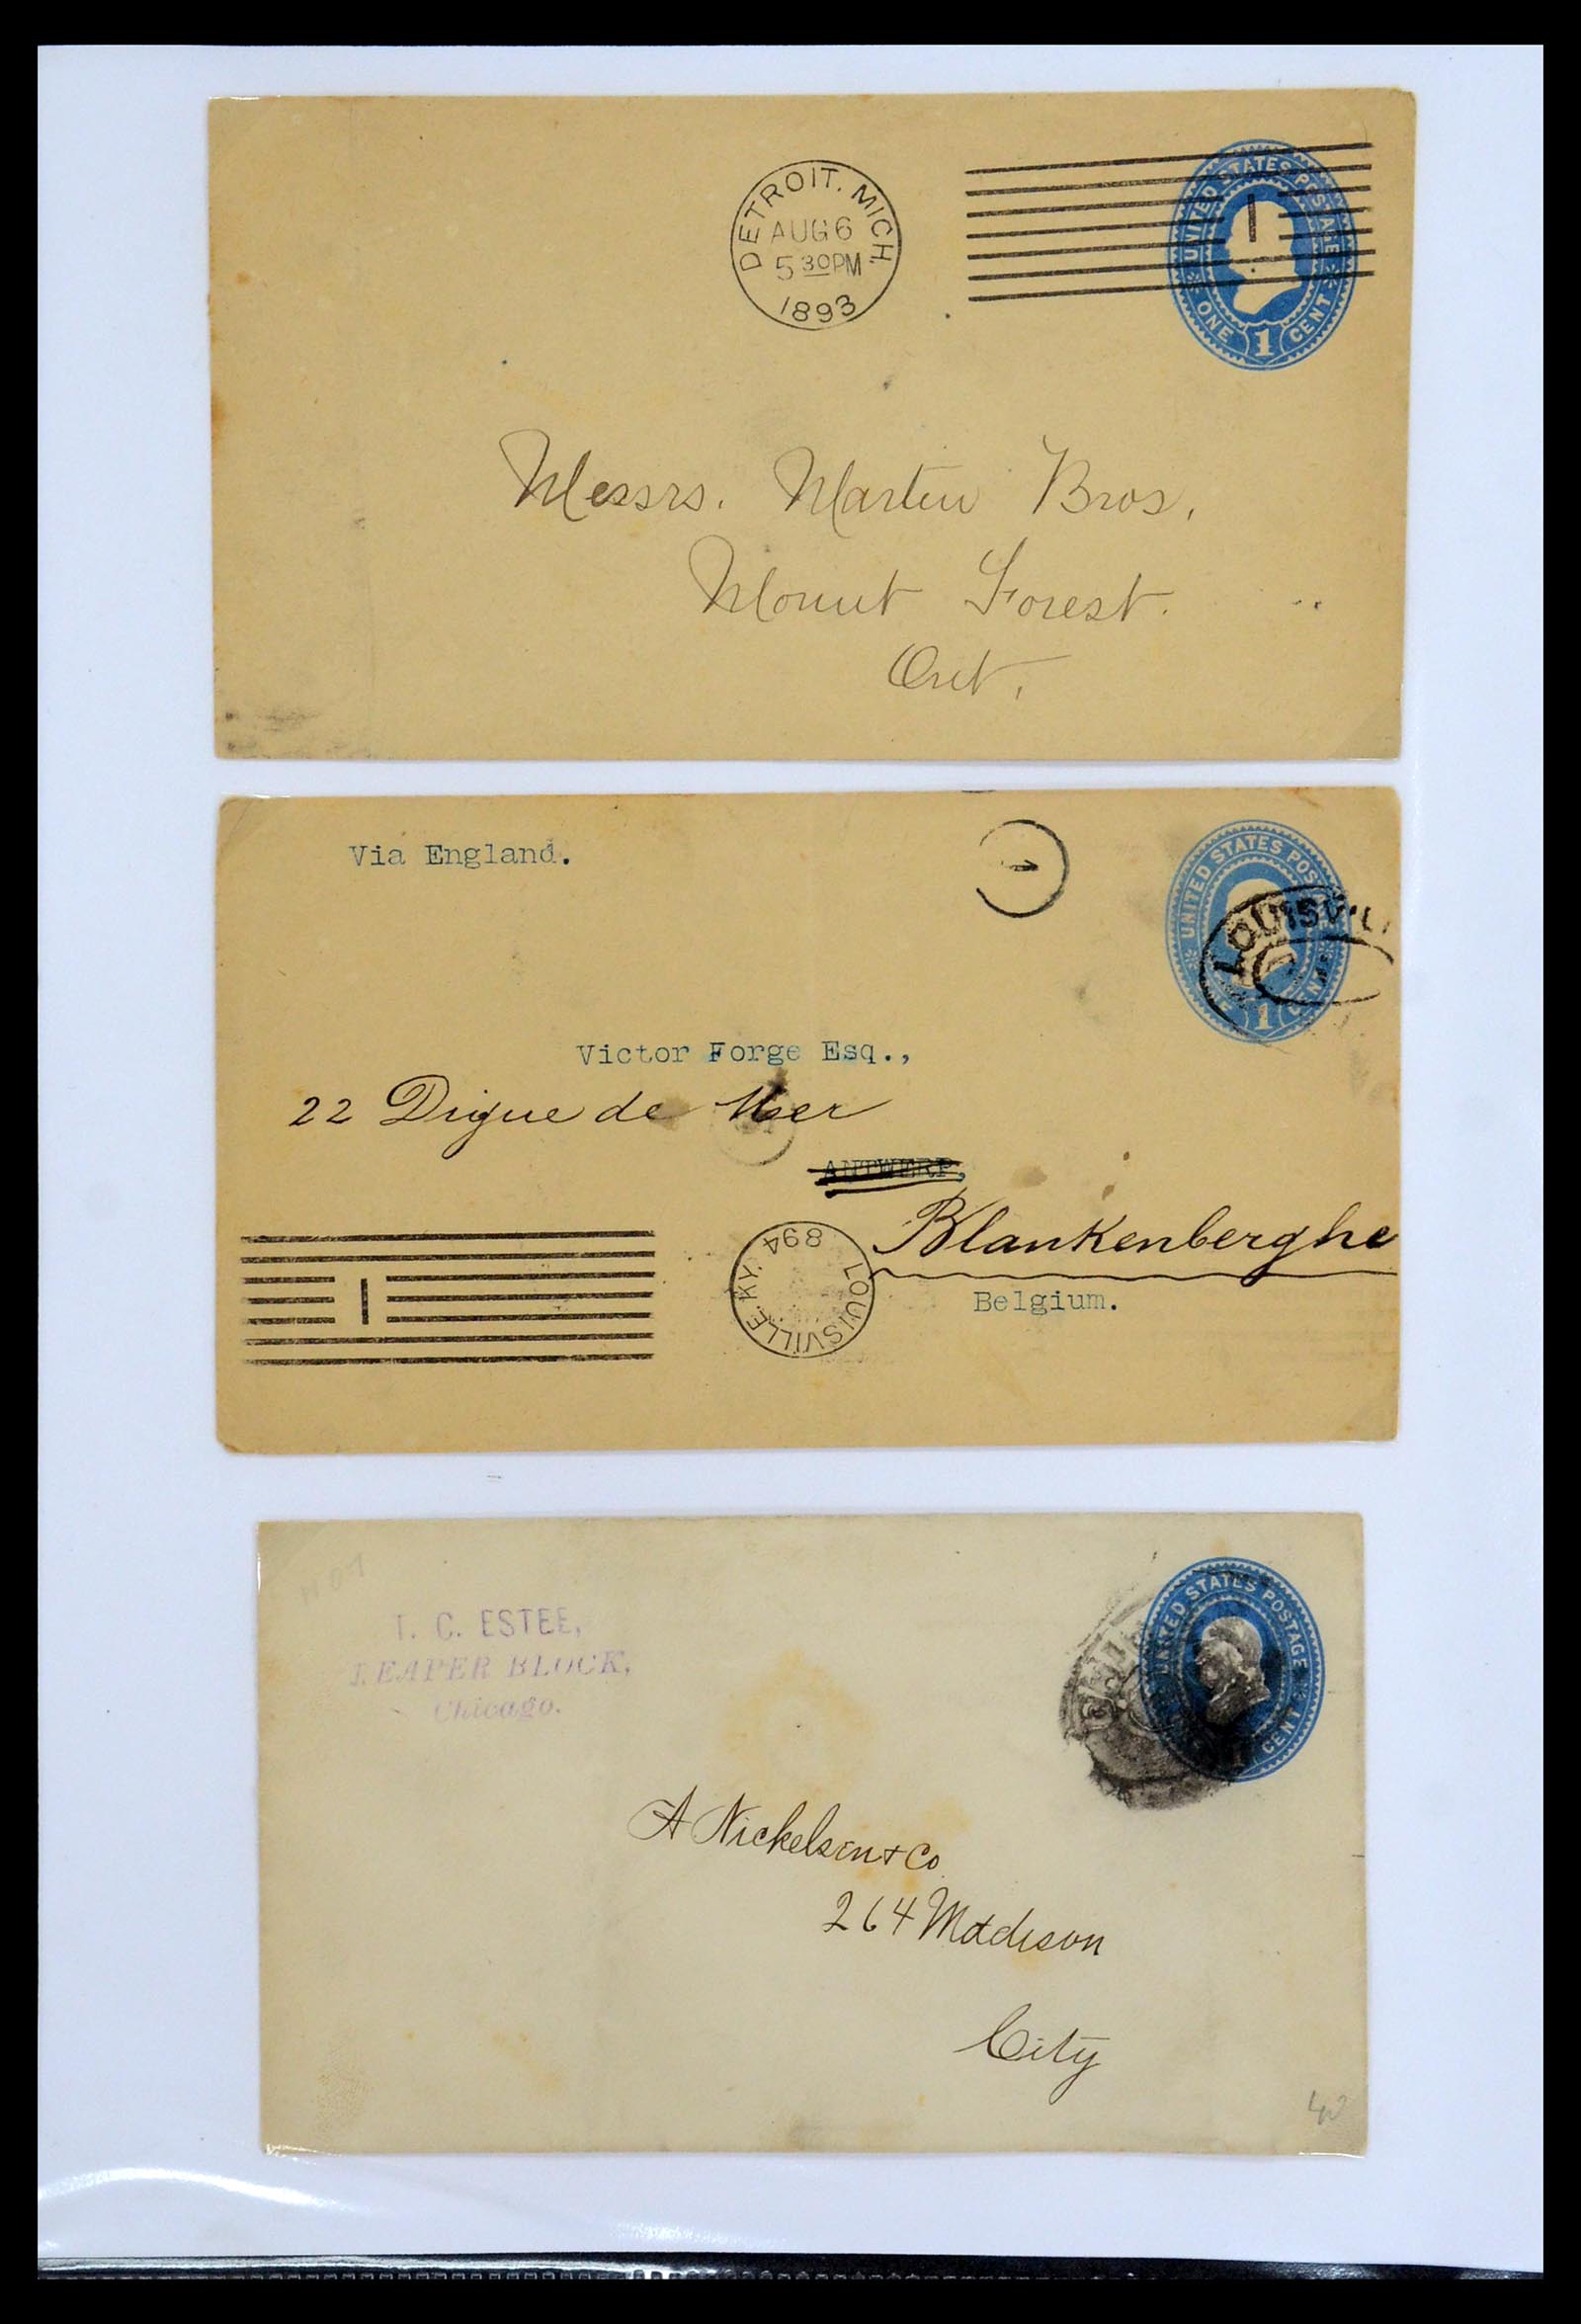 DETROIT. MICH.
AUG 6
5 30 PM
1893
UNITED STATES POSTAGE
ONE 1 CENT
Messrs. Martin Bros,
Mount Forest.
Ont,
Via England.
UNITED STATES POS
1 CEN
LOUISVIL
Victor Forge Esq.,
22 Digue de Mer
ANTWERP,
Blankenberghe
Belgium.
LOUISVILLE. KY.
894
T. C. ESTEE,
REAPER BLOCK,
Chicago.
UNITED STATES POSTAGE
CENT
A Nickelsen & Co.
264 Madison
City